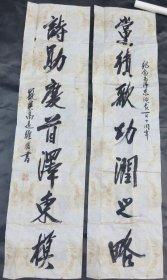 紀念毛澤東誕辰一百一十周年
黨禎歌功潤之略
詩助慶首澤東模